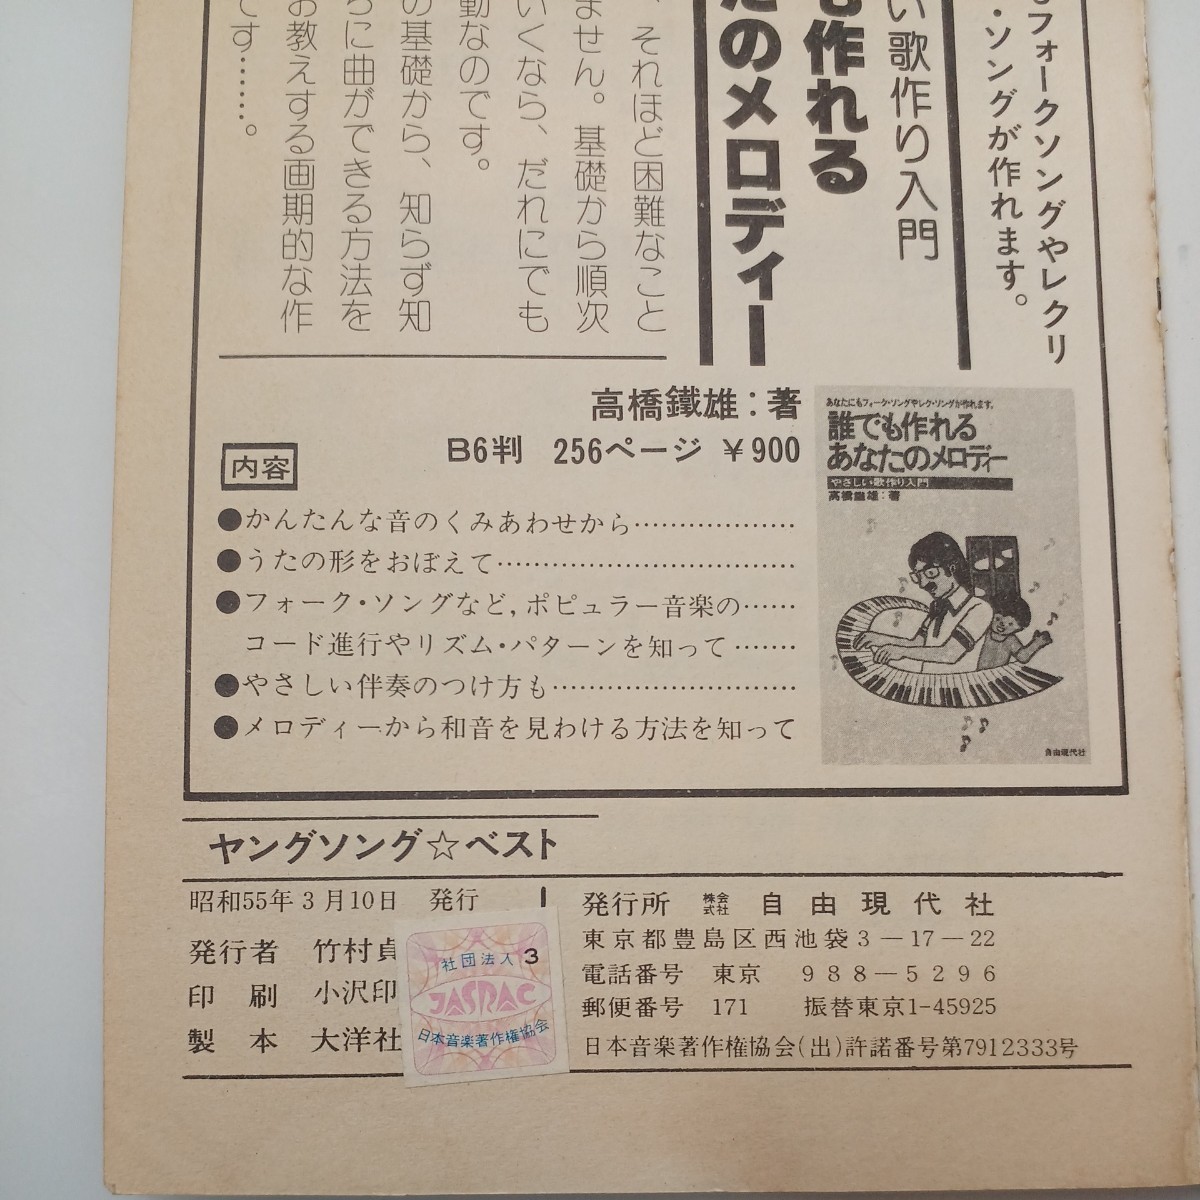 フォークソングやレクリ
・ソングが作れます。
い歌作り入門
も作れる
たのメロディー
、それほど困難なこと
ません。基礎から順次
いくなら、だれにでも
動なのです。
の基礎から、知らず知
らに曲ができる方法を
お教えする画期的な作
です……。
高橋鐵雄：著
B6判　256ページ ￥900
内容
●かんたんな音のくみあわせから………………
●うたの形をおぼえて……………………………
●フォーク・ソングなど，ポピュラー音楽の……
コード進行やリズム・パターンを知って……
●やさしい伴奏のつけ方も………………………
●メロディーから和音を見わける方法を知って
あなたにもフォーク・ソングやレク・ソングが作れます。
誰でも作れる
あなたのメロディー
やさしい歌作り入門
高橋鐵雄：著
自由現代社
ヤングソング☆ベスト
昭和55年3月10日　発行
発行者　竹村貞
印　刷　小沢印
製　本　大洋社
社団法人 3
JASRAC
日本音楽著作権協会
発行所　株式会社　自由現代社
東京都豊島区西池袋3－17－22
電話番号　東京　988－5296
郵便番号　171　振替東京1-45925
日本音楽著作権協会(出)許諾番号第7912333号